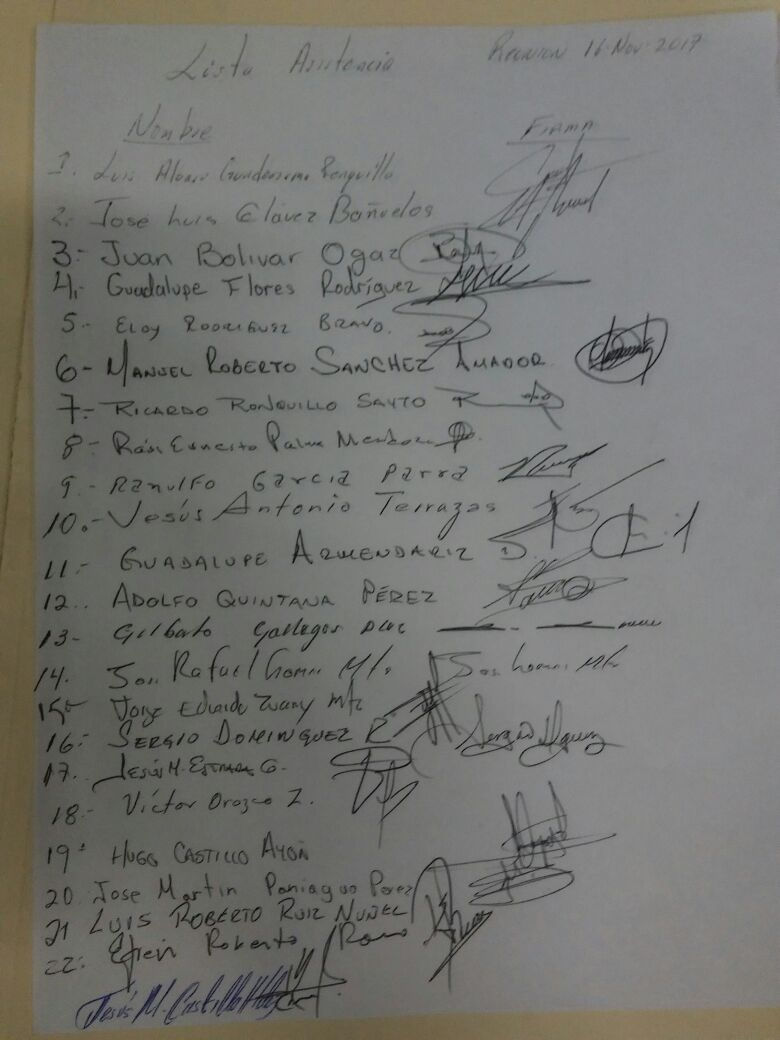 Lista Asistencia Reunion 16-Nov-2017
Nombre Firma
1. Luis Alvaro Ronquillo
2.- Jose Luis Chávez Bañuelos
3.- Juan Bolivar Ogaz
4.- Guadalupe Flores Rodríguez
5.- Eloy Rodriguez Bravo.
6.- Manuel Roberto Sanchez Amador
7.- Ricardo Ronquillo Sayto
8.- Ernesto Palma Mendoza
9.- Ranulfo Garcia Parra
10.- Jesús Antonio Terrazas
11.- Guadalupe Armendariz D.
12.. Adolfo Quintana Pérez
13- Gilberto Gallegos
14. Rafael
15- Jorge Eduardo Mtz
16.- Sergio Dominguez R.
17. Jesús M. Estrada G.
18.- Víctor Orozco Z.
19- Hugo Castillo Ayón
20. Jose Martin Paniagua Perez
21 Luis Roberto Ruiz Nuñez
22. Efrein Roberto
Jesús M. Castillo